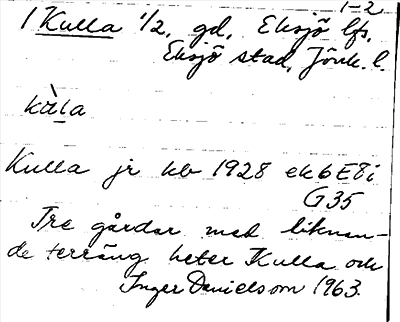 1-2
1 Kulla 1/2, gd, Eksjö lfs,
Eksjö stad, Jönk. l.
kùla
Kulla jr kb 1928 ek 6E8i
G35
Tre gårdar med liknan-
de terräng heter Kulla och
Inger Danielsson 1963.